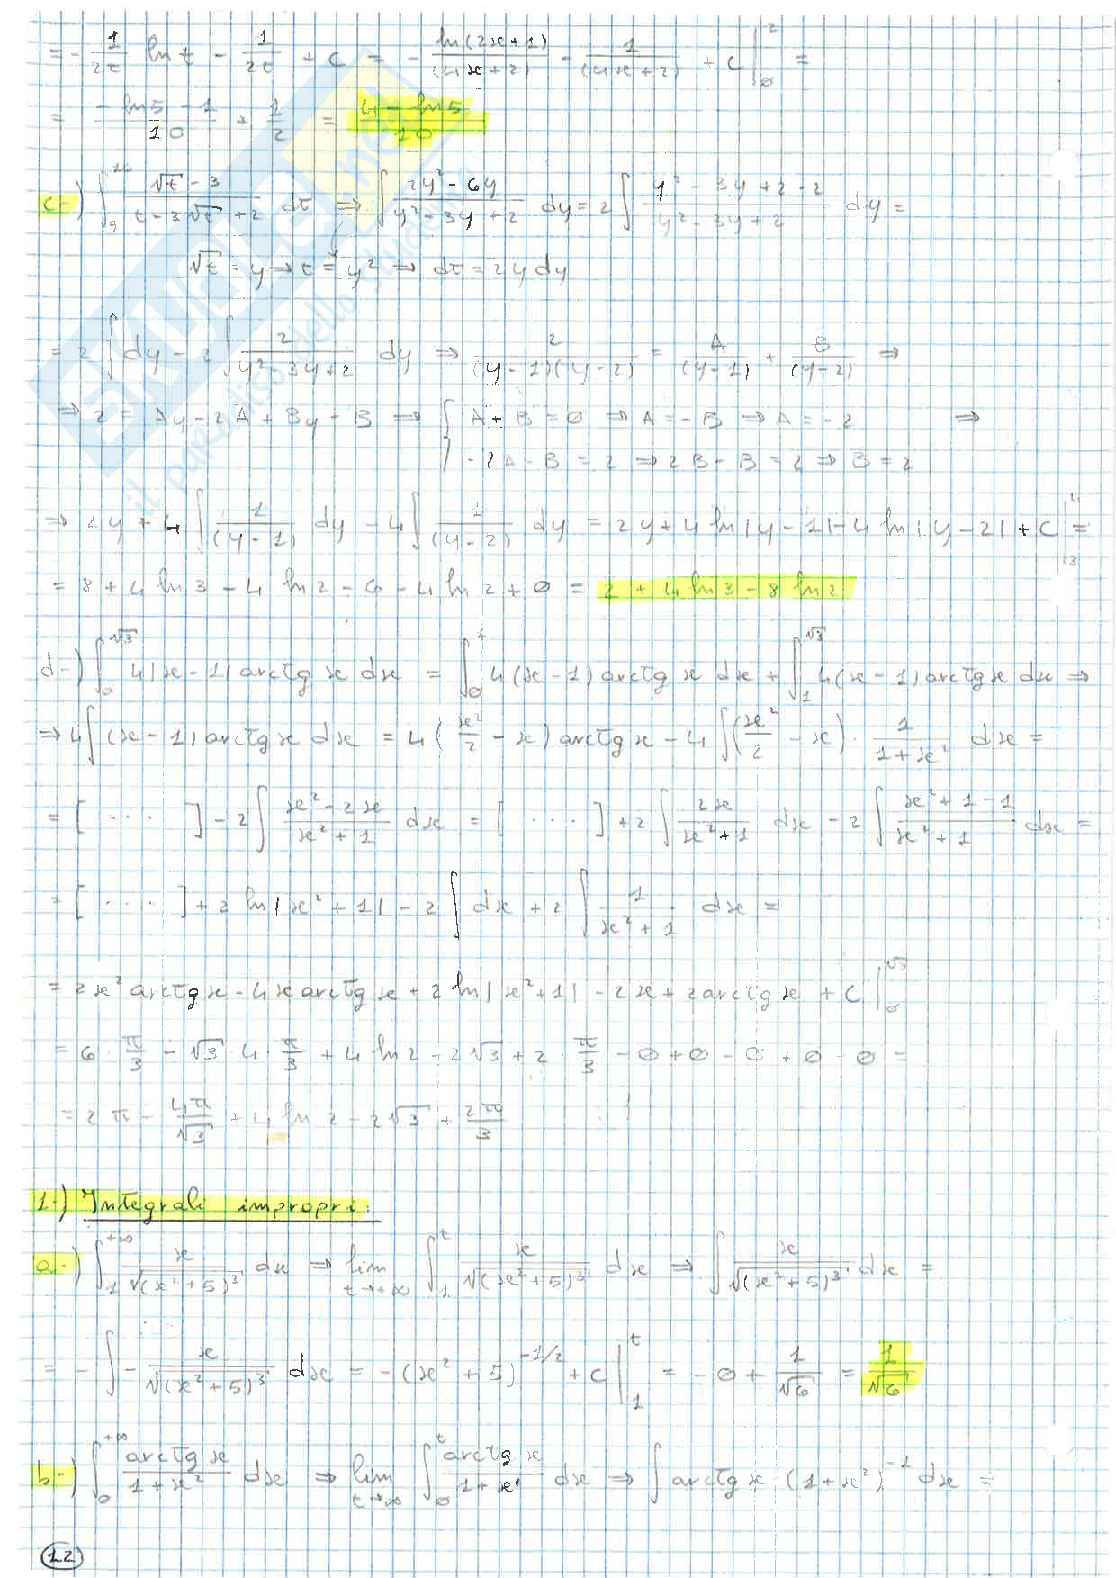 = - 1/2t ln t - 1/2t + c = - ln(2x+1)/(4x+2) - 1/(4x+2) + c |₀² =
= (-ln5 - 1)/10 + 1/2 = (4 - ln5)/10
c-) ∫₉¹⁶ (√t - 3)/(t - 3√t + 2) dt ⇒ ∫ (2y² - 6y)/(y² - 3y + 2) dy = 2∫ (y² - 3y + 2 - 2)/(y² - 3y + 2) dy =
√t = y → t = y² → dt = 2y dy
= 2∫ dy - 2∫ 2/(y² - 3y + 2) dy ⇒ 2/((y-1)(y-2)) = A/(y-1) + B/(y-2) ⇒
⇒ 2 = Ay - 2A + By - B ⇒ { A + B = 0 ⇒ A = -B ⇒ A = -2 ⇒
-2A - B = 2 ⇒ 2B - B = 2 ⇒ B = 2
⇒ 2y + 4∫ 1/(y-1) dy - 4∫ 1/(y-2) dy = 2y + 4 ln|y-1| - 4 ln|y-2| + c |₃⁴ =
= 8 + 4 ln3 - 4 ln2 - 6 - 4 ln2 + 0 = 2 + 4 ln3 - 8 ln2
d-) ∫₀^√3 4|x-1| arctg x dx = ∫₀¹ 4(x-1) arctg x dx + ∫₁^√3 4(x-1) arctg x dx ⇒
⇒ 4∫ (x-1) arctg x dx = 4(x²/2 - x) arctg x - 4∫ (x²/2 - x) · 1/(1+x²) dx =
= [ ···· ] - 2∫ (x² - 2x)/(x² + 1) dx = [ ···· ] + 2∫ 2x/(x²+1) dx - 2∫ (x² + 1 - 1)/(x² + 1) dx =
= [ ···· ] + 2 ln|x² + 1| - 2∫ dx + 2∫ 1/(x² + 1) dx =
= 2x² arctg x - 4x arctg x + 2 ln|x²+1| - 2x + 2 arctg x + c |₀^√3
= 6 π/3 - √3 · 4 · π/3 + 4 ln2 - 2√3 + 2 · π/3 - 0 + 0 - 0 + 0 - 0 =
= 2π - 4π/√3 + 4 ln 2 - 2√3 + 2π/3
1-) Integrali impropri:
a-) ∫₁^+∞ x/√(x²+5)³ dx ⇒ lim t→+∞ ∫₁ᵗ x/√(x²+5)³ dx ⇒ ∫ x/√(x²+5)³ dx =
= -∫ - x/√(x²+5)³ dx = -(x²+5)^-1/2 + c |₁ᵗ = -0 + 1/√6 = 1/√6
b-) ∫₀^+∞ arctg x/(1+x²) dx ⇒ lim t→∞ ∫₀ᵗ arctg x/(1+x²) dx ⇒ ∫ arctg x · (1+x²)^-1 dx =
12